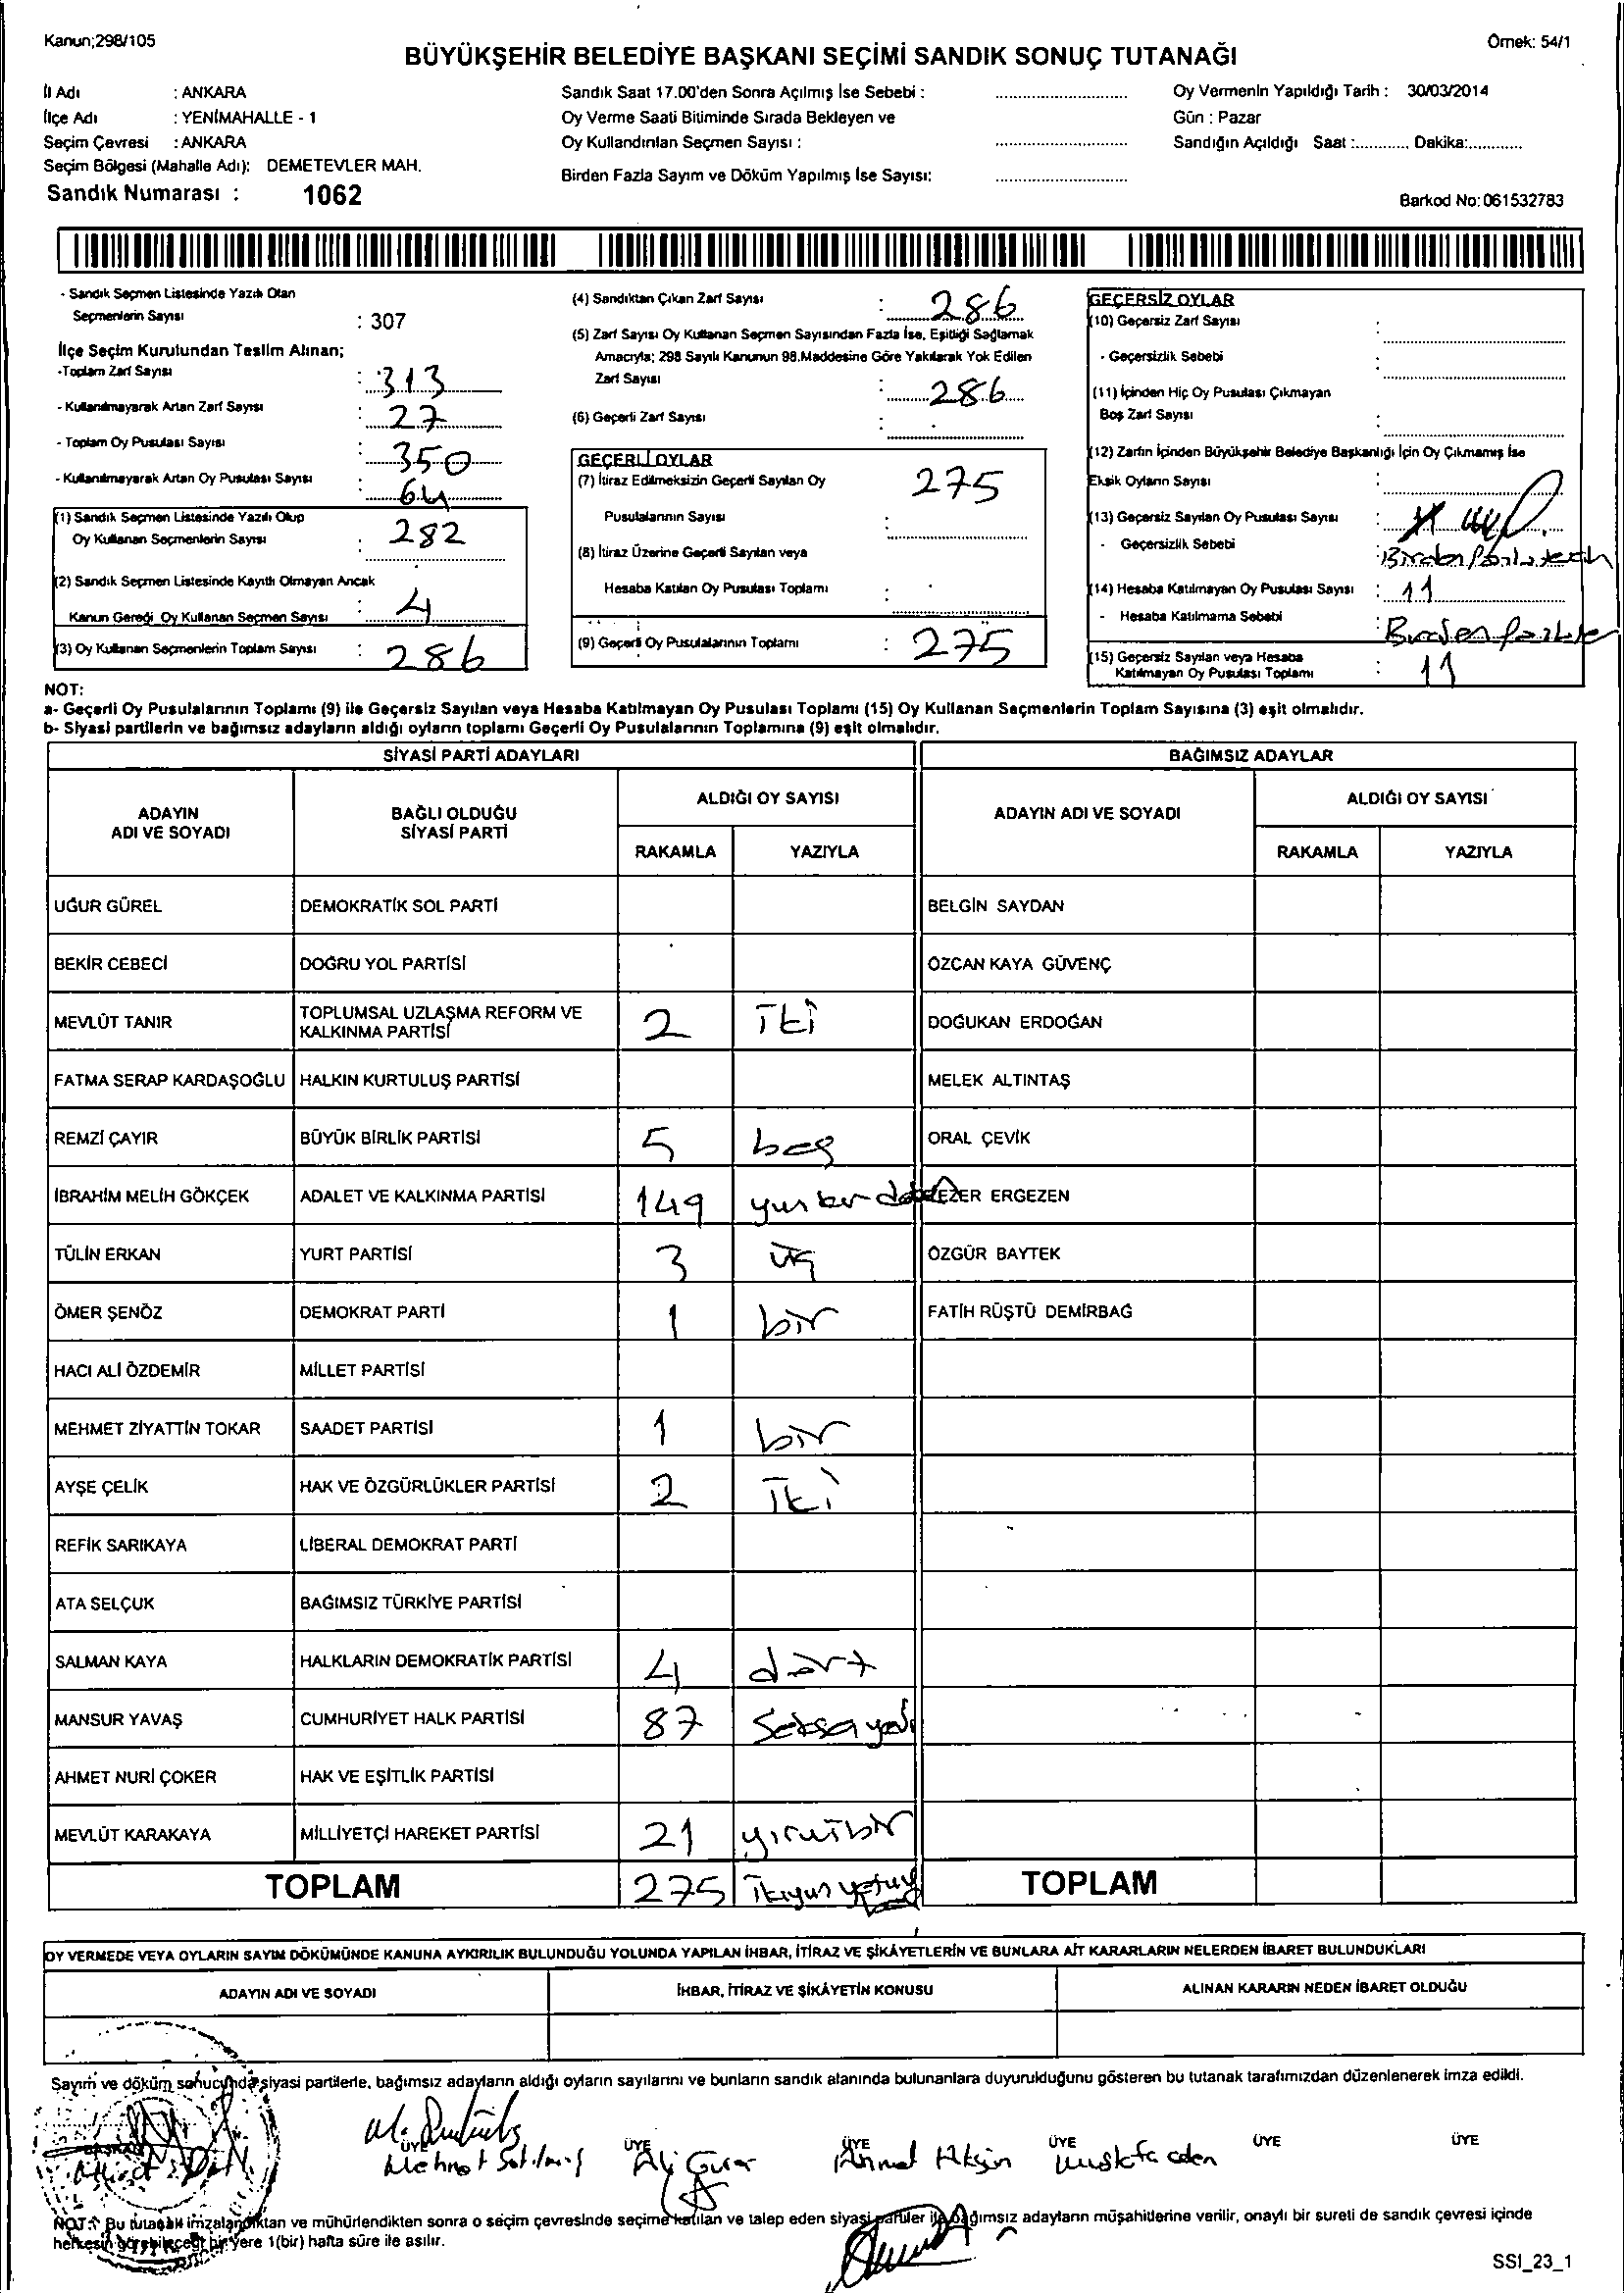 Kanun;298/105
Örnek: 54/1
BÜYÜKŞEHİR BELEDİYE BAŞKANI SEÇİMİ SANDIK SONUÇ TUTANAĞI
İl Adı : ANKARA
İlçe Adı : YENİMAHALLE - 1
Seçim Çevresi : ANKARA
Seçim Bölgesi (Mahalle Adı): DEMETEVLER MAH.
Sandık Numarası : 1062
Sandık Saat 17.00'den Sonra Açılmış İse Sebebi :
Oy Verme Saati Bitiminde Sırada Bekleyen ve
Oy Kullandırılan Seçmen Sayısı :
Birden Fazla Sayım ve Döküm Yapılmış İse Sayısı:
Oy Vermenin Yapıldığı Tarih : 30/03/2014
Gün : Pazar
Sandığın Açıldığı Saat :............ Dakika:............
Barkod No:061532783
- Sandık Seçmen Listesinde Yazılı Olan
Seçmenlerin Sayısı : 307
İlçe Seçim Kurulundan Teslim Alınan;
-Toplam Zarf Sayısı : 313
- Kullanılmayarak Artan Zarf Sayısı : 27
- Toplam Oy Pusulası Sayısı : 350
- Kullanılmayarak Artan Oy Pusulası Sayısı : 64
(1) Sandık Seçmen Listesinde Yazılı Olup
Oy Kullanan Seçmenlerin Sayısı : 282
(2) Sandık Seçmen Listesinde Kayıtlı Olmayan Ancak
Kanun Gereği Oy Kullanan Seçmen Sayısı : 4
(3) Oy Kullanan Seçmenlerin Toplam Sayısı : 286
(4) Sandıktan Çıkan Zarf Sayısı : 286
(5) Zarf Sayısı Oy Kullanan Seçmen Sayısından Fazla İse, Eşitliği Sağlamak
Amacıyla; 298 Sayılı Kanunun 98.Maddesine Göre Yakılarak Yok Edilen
Zarf Sayısı : 286
(6) Geçerli Zarf Sayısı :
GEÇERLİ OYLAR
(7) İtiraz Edilmeksizin Geçerli Sayılan Oy 275
Pusulalarının Sayısı :
(8) İtiraz Üzerine Geçerli Sayılan veya
Hesaba Katılan Oy Pusulası Toplamı :
(9) Geçerli Oy Pusulalarının Toplamı : 275
GEÇERSİZ OYLAR
(10) Geçersiz Zarf Sayısı :
- Geçersizlik Sebebi :
(11) İçinden Hiç Oy Pusulası Çıkmayan
Boş Zarf Sayısı :
(12) Zarfın İçinden Büyükşehir Belediye Başkanlığı İçin Oy Çıkmamış İse
Eksik Oyların Sayısı :
(13) Geçersiz Sayılan Oy Pusulası Sayısı :
- Geçersizlik Sebebi : Birden
(14) Hesaba Katılmayan Oy Pusulası Sayısı : 11
- Hesaba Katılmama Sebebi : Birden
(15) Geçersiz Sayılan veya Hesaba
Katılmayan Oy Pusulası Toplamı : 11
NOT:
a- Geçerli Oy Pusulalarının Toplamı (9) ile Geçersiz Sayılan veya Hesaba Katılmayan Oy Pusulası Toplamı (15) Oy Kullanan Seçmenlerin Toplam Sayısına (3) eşit olmalıdır.
b- Siyasi partilerin ve bağımsız adayların aldığı oyların toplamı Geçerli Oy Pusulalarının Toplamına (9) eşit olmalıdır.
SİYASİ PARTİ ADAYLARI BAĞIMSIZ ADAYLAR
ADAYIN
ADI VE SOYADI
BAĞLI OLDUĞU
SİYASİ PARTİ
ALDIĞI OY SAYISI
RAKAMLA YAZIYLA
ADAYIN ADI VE SOYADI
ALDIĞI OY SAYISI
RAKAMLA YAZIYLA
UĞUR GÜREL DEMOKRATİK SOL PARTİ BELGİN SAYDAN
BEKİR CEBECİ DOĞRU YOL PARTİSİ ÖZCAN KAYA GÜVENÇ
MEVLÜT TANIR TOPLUMSAL UZLAŞMA REFORM VE
KALKINMA PARTİSİ 2 iki DOĞUKAN ERDOĞAN
FATMA SERAP KARDAŞOĞLU HALKIN KURTULUŞ PARTİSİ MELEK ALTINTAŞ
REMZİ ÇAYIR BÜYÜK BİRLİK PARTİSİ 5 beş ORAL ÇEVİK
İBRAHİM MELİH GÖKÇEK ADALET VE KALKINMA PARTİSİ 149 EZER ERGEZEN
TÜLİN ERKAN YURT PARTİSİ 3 üç ÖZGÜR BAYTEK
ÖMER ŞENÖZ DEMOKRAT PARTİ 1 bir FATİH RÜŞTÜ DEMİRBAĞ
HACI ALİ ÖZDEMİR MİLLET PARTİSİ
MEHMET ZİYATTİN TOKAR SAADET PARTİSİ 1 bir
AYŞE ÇELİK HAK VE ÖZGÜRLÜKLER PARTİSİ 2 iki
REFİK SARIKAYA LİBERAL DEMOKRAT PARTİ
ATA SELÇUK BAĞIMSIZ TÜRKİYE PARTİSİ
SALMAN KAYA HALKLARIN DEMOKRATİK PARTİSİ 4 dört
MANSUR YAVAŞ CUMHURİYET HALK PARTİSİ 87
AHMET NURİ ÇOKER HAK VE EŞİTLİK PARTİSİ
MEVLÜT KARAKAYA MİLLİYETÇİ HAREKET PARTİSİ 21 yirmibir
TOPLAM 275 TOPLAM
OY VERMEDE VEYA OYLARIN SAYIM DÖKÜMÜNDE KANUNA AYKIRILIK BULUNDUĞU YOLUNDA YAPILAN İHBAR, İTİRAZ VE ŞİKÂYETLERİN VE BUNLARA AİT KARARLARIN NELERDEN İBARET BULUNDUKLARI
ADAYIN ADI VE SOYADI İHBAR, İTİRAZ VE ŞİKÂYETİN KONUSU ALINAN KARARIN NEDEN İBARET OLDUĞU
Sayım ve döküm sonucunda siyasi partilerle, bağımsız adayların aldığı oyların sayılarını ve bunların sandık alanında bulunanlara duyurulduğunu gösteren bu tutanak tarafımızdan düzenlenerek imza edildi.
BAŞKAN ÜYE ÜYE ÜYE ÜYE ÜYE ÜYE
Ali Mustafa
NOT: Bu tutanak imzalandıktan ve mühürlendikten sonra o seçim çevresinde seçime katılan ve talep eden siyasi partiler ile bağımsız adayların müşahitlerine verilir, onaylı bir sureti de sandık çevresi içinde
herkesin görebileceği bir yere 1(bir) hafta süre ile asılır.
SSI_23_1